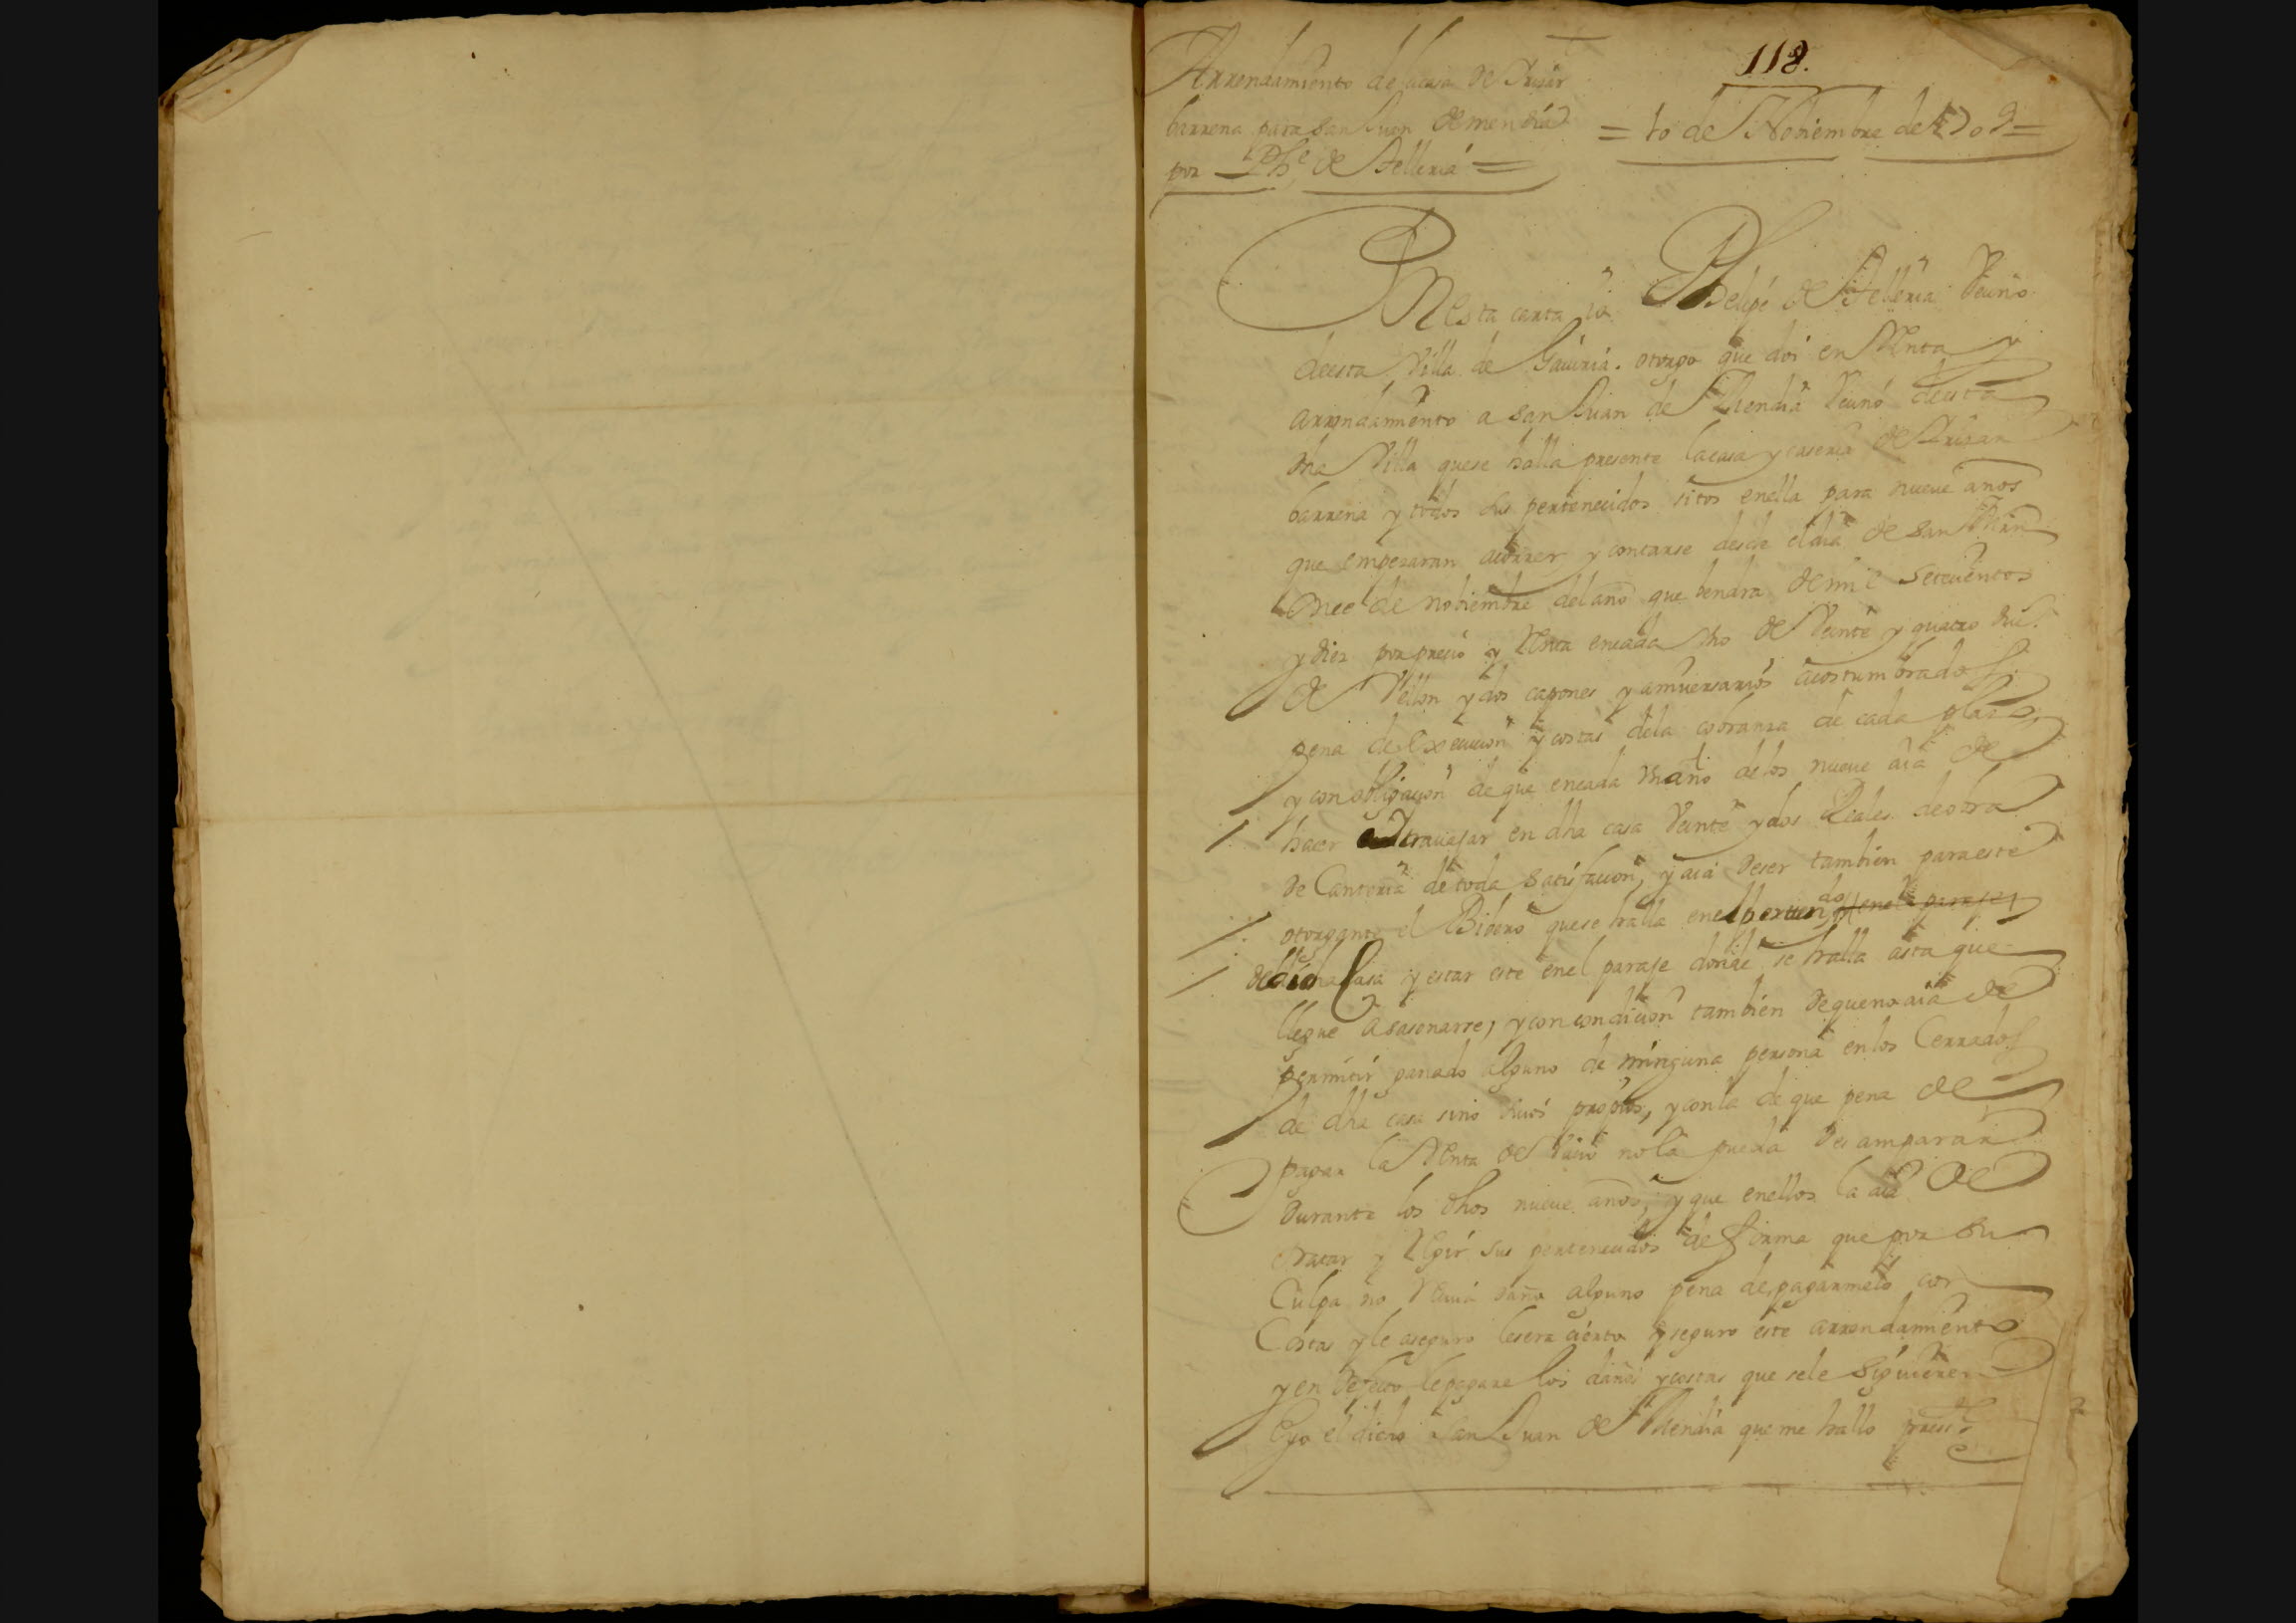 118.
Arrendamiento de la casa de Arizar
barrena para San Juan de mendia
por Phe de Telleria =
= 10 de Nobiembre de 1709 =
En esta carta io Phelipe de Telleria Vecino
de esta Villa de Gauiria. otorgo que doi en Renta y
arrendamiento a San Juan de Mendia Vecino de esta
dha Villa que se halla presente la casa y caseria de Arizar
barrena y todos sus pertenecidos sitos en ella para nueue años
que empezaran a correr y contarse desde el dia de San Mrn
once de nobiembre del año que vendra de mil setecientos
y diez por precio y Renta en cada año de Veinte y quatro duc.s
de Vellon y dos capones y aniuersarios acostumbrados
pena de execucion y costas de la cobranza de cada plazo,
y con obligacion de que en cada año de los nueue aia de
hacer trauajar en dha casa Veinte y dos Reales de obra
de Canteria de toda satisfacion, y aia de ser tambien para este
otorgante el Bibero que se halla en el perten.do en el paraje
de dicha Casa y estar este en el paraje donde se halla asta que
llegue a sasonarse, y con condicion tambien de que no aia de
permitir ganado alguno de ninguna persona en los Cerrados
de dha casa sino suios propios, y con la de que pena de
pagar la Renta de Vacio no la pueda desamparar
durante los dhos nueue años, y que en ellos la aia de
tratar y Regir sus pertenecidos de forma que por su
Culpa no Reciua daño alguno pena de pagarmelo con
Costas y le aseguro le sera cierto y seguro este arrendamiento
y en defecto le pagare los daños y costas que se le siguieren
E yo el dicho San Juan de Mendia que me hallo press.te